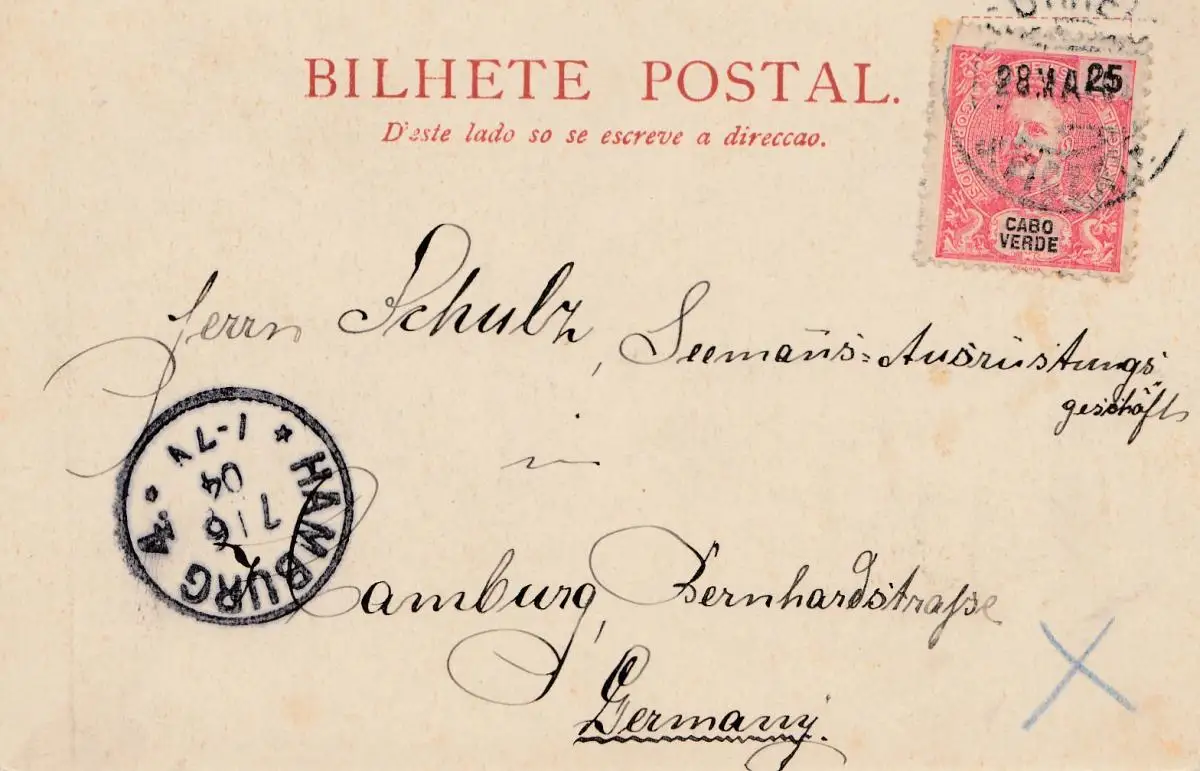 BILHETE POSTAL.
D'este lado so se escreve a direccao.
28 MA
25
PORTUGAL
CABO
VERDE
Herrn Schulz, Seemans=Ausrüstungs
geschäft
in
Hamburg, Bernhardstraße
Germany.
HAMBURG 4.
7 6
04
1-2N